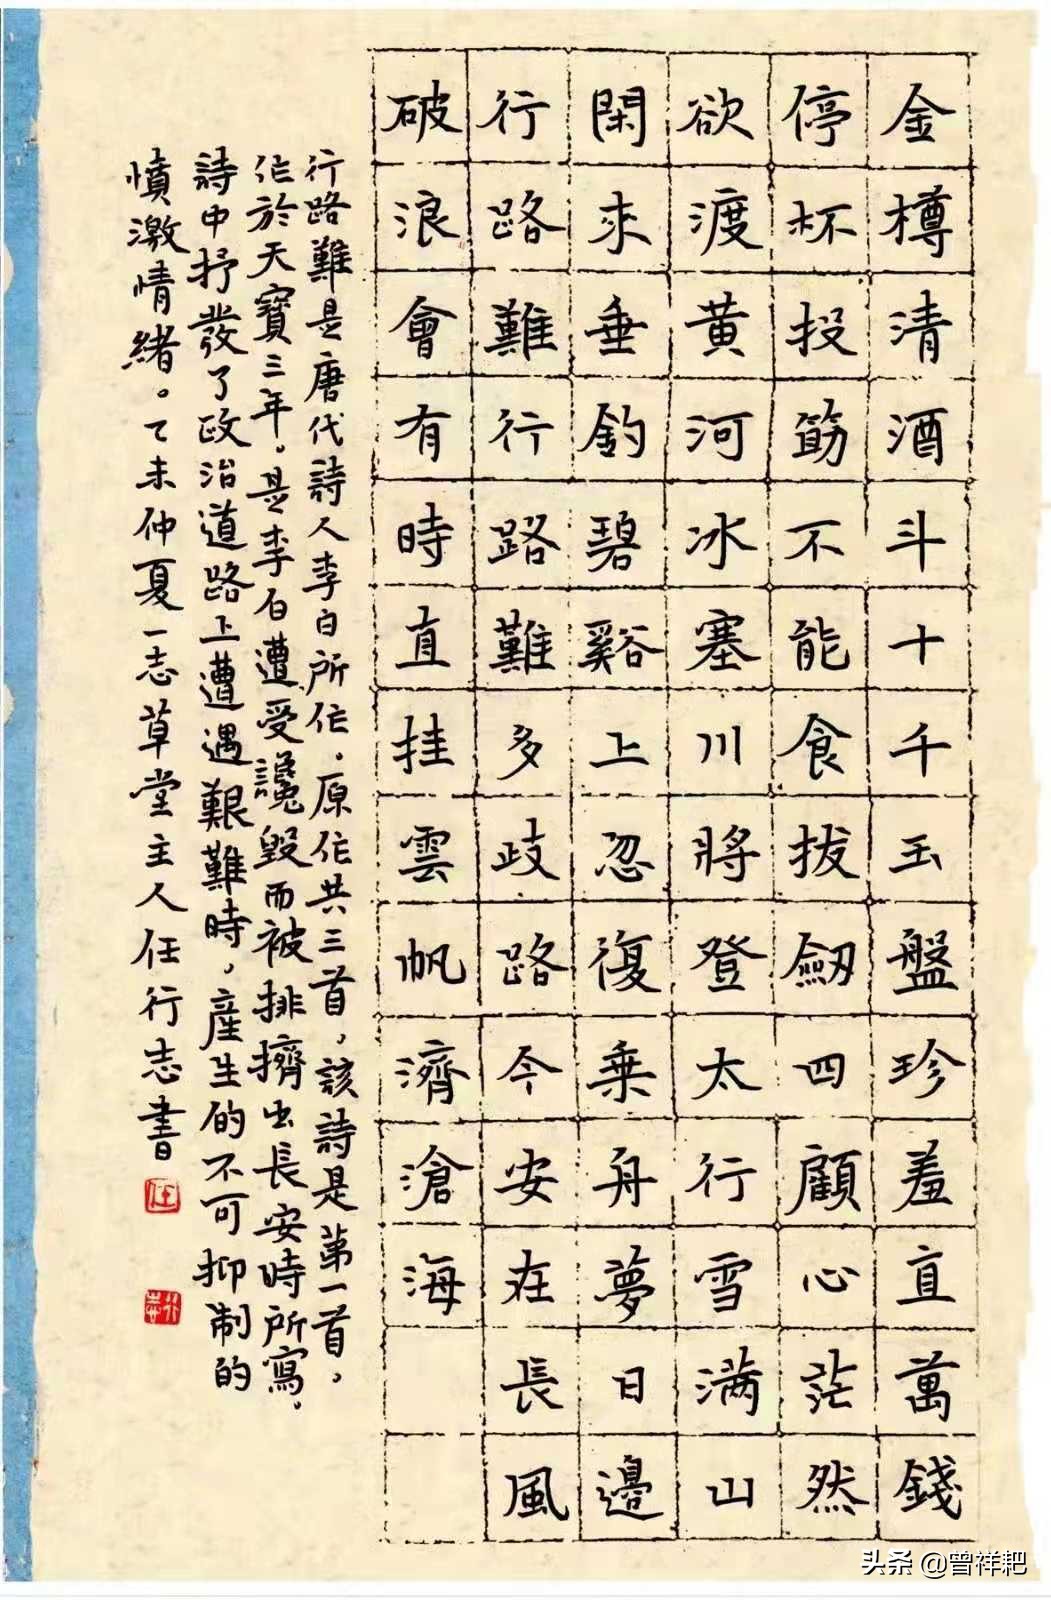 金樽清酒斗十千玉盤珍羞直萬錢
停杯投筯不能食拔劒四顧心茫然
欲渡黄河冰塞川將登太行雪满山
閑來垂釣碧谿上忽復乗舟夢日邊
行路難行路難多歧路今安在長風
破浪會有時直挂雲帆濟滄海
行路難是唐代詩人李白所作．原作共三首，該詩是第一首，
作於天寶三年。是李白遭受讒毀而被排擠出長安時所寫．
詩中抒發了政治道路上遭遇艱難時，產生的不可抑制的
憤激情緒。乙未仲夏一志草堂主人任行志書
任
行志
头条 @曾祥耙